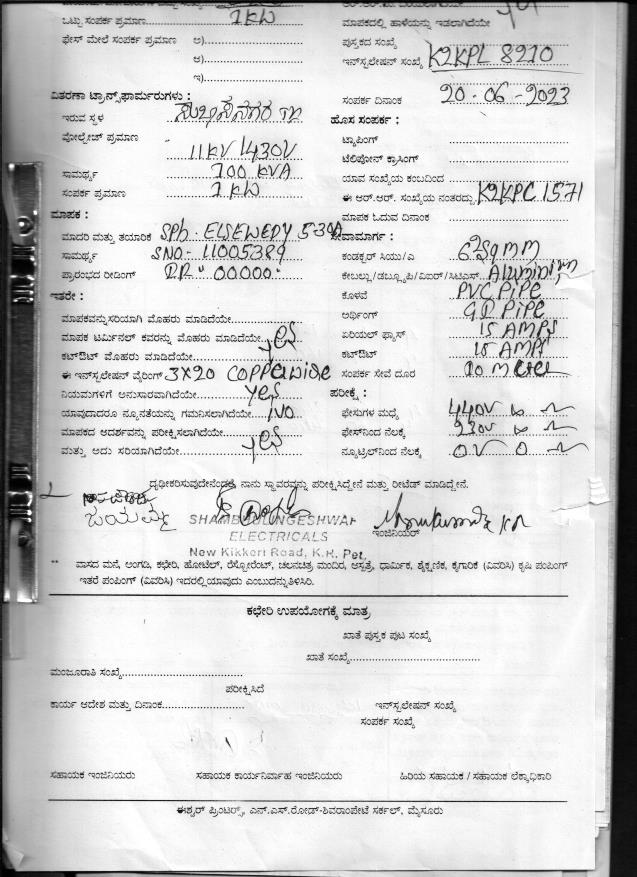 ಒಟ್ಟು ಸಂಪರ್ಕ ಪ್ರಮಾಣ 1 KW
ಫೇಸ್ ಮೇಲೆ ಸಂಪರ್ಕ ಪ್ರಮಾಣ ಅ)
ಆ)
ಇ)
ವಿತರಣಾ ಟ್ರಾನ್ಸ್‌ಫಾರ್ಮರುಗಳು :
ಇರುವ ಸ್ಥಳ
ವೋಲ್ಟೇಜ್ ಪ್ರಮಾಣ 11KV/430V
ಸಾಮರ್ಥ್ಯ 100 KVA
ಸಂಪರ್ಕ ಪ್ರಮಾಣ 1 KW
ಮಾಪಕ :
ಮಾದರಿ ಮತ್ತು ತಯಾರಿಕೆ SPh. ELSEWEDY 5-30A
ಸಾಮರ್ಥ್ಯ SNO- 11005389
ಪ್ರಾರಂಭದ ರೀಡಿಂಗ್ 00000
ಇತರೇ :
ಮಾಪಕವನ್ನು ಸರಿಯಾಗಿ ಮೊಹರು ಮಾಡಿದೆಯೇ
ಮಾಪಕ ಟರ್ಮಿನಲ್ ಕವರನ್ನು ಮೊಹರು ಮಾಡಿದೆಯೇ yes
ಕಟ್‌ಔಟ್ ಮೊಹರು ಮಾಡಿದೆಯೇ
ಈ ಇನ್‌ಸ್ಟಲೇಷನ್ ವೈರಿಂಗ್ 3X20 COPPERWIRE
ನಿಯಮಗಳಿಗೆ ಅನುಸಾರವಾಗಿದೆಯೇ yes
ಯಾವುದಾದರೂ ನ್ಯೂನತೆಯನ್ನು ಗಮನಿಸಲಾಗಿದೆಯೇ NO
ಮಾಪಕದ ಆದರ್ಶವನ್ನು ಪರೀಕ್ಷಿಸಲಾಗಿದೆಯೇ yes
ಮತ್ತು ಅದು ಸರಿಯಾಗಿದೆಯೇ
ಮಾಪಕದಲ್ಲಿ ಹಾಳೆಯನ್ನು ಇಡಲಾಗಿದೆಯೇ
ಪುಸ್ತಕದ ಸಂಖ್ಯೆ
ಇನ್‌ಸ್ಟಲೇಷನ್ ಸಂಖ್ಯೆ K2KPL 8210
ಸಂಪರ್ಕ ದಿನಾಂಕ 20-06-2023
ಹೊಸ ಸಂಪರ್ಕ :
ಟ್ಯಾಪಿಂಗ್
ಟೆಲಿಫೋನ್ ಕ್ರಾಸಿಂಗ್
ಯಾವ ಸಂಖ್ಯೆಯ ಕಂಬದಿಂದ
ಈ ಆರ್.ಆರ್. ಸಂಖ್ಯೆಯ ನಂತರದ್ದು K2KPC1571
ಮಾಪಕ ಓದುವ ದಿನಾಂಕ
ಸೇವಾಮಾರ್ಗ :
ಕಂಡಕ್ಟರ್ ಸಿಯು/ಎ 6 Sqmm
ಕೇಬಲ್ಲು/ಡಬ್ಲ್ಯೂಪಿ/ವಿಐಆರ್/ಸಿಟಿಎಸ್ Aluminium
ಕೊಳವೆ PVC PIPE
ಅರ್ಥಿಂಗ್ G.I PIPE
ಏರಿಯಲ್ ಫ್ಯೂಸ್ 15 AMPS
ಕಟ್‌ಔಟ್ 15 AMPS
ಸಂಪರ್ಕ ಸೇವೆ ದೂರ 10 Meter
ಪರೀಕ್ಷೆ :
ಫೇಸುಗಳ ಮಧ್ಯೆ 440V
ಫೇಸ್‌ನಿಂದ ನೆಲಕ್ಕೆ 230V
ನ್ಯೂಟ್ರಲ್‌ನಿಂದ ನೆಲಕ್ಕೆ 0V
ದೃಢೀಕರಿಸುವುದೇನೆಂದರೆ, ನಾನು ಸ್ಥಾವರವನ್ನು ಪರೀಕ್ಷಿಸಿದ್ದೇನೆ ಮತ್ತು ರೀಟೆಡ್ ಮಾಡಿದ್ದೇನೆ.
ಜಯಮ್ಮ
SHAMBULINGESHWAR
ELECTRICALS
New Kikkeri Road, K.R. Pet.
ಇಂಜಿನಿಯರ್
** ವಾಸದ ಮನೆ, ಅಂಗಡಿ, ಕಛೇರಿ, ಹೋಟೆಲ್, ರೆಸ್ಟೋರೆಂಟ್, ಚಲನಚಿತ್ರ ಮಂದಿರ, ಆಸ್ಪತ್ರೆ, ಧಾರ್ಮಿಕ, ಶೈಕ್ಷಣಿಕ, ಕೈಗಾರಿಕೆ (ವಿವರಿಸಿ) ಕೃಷಿ ಪಂಪಿಂಗ್
ಇತರೆ ಪಂಪಿಂಗ್ (ವಿವರಿಸಿ) ಇದರಲ್ಲಿ ಯಾವುದು ಎಂಬುದನ್ನು ತಿಳಿಸಿರಿ.
ಕಛೇರಿ ಉಪಯೋಗಕ್ಕೆ ಮಾತ್ರ
ಖಾತೆ ಪುಸ್ತಕ ಪುಟ ಸಂಖ್ಯೆ
ಖಾತೆ ಸಂಖ್ಯೆ
ಮಂಜೂರಾತಿ ಸಂಖ್ಯೆ
ಪರೀಕ್ಷಿಸಿದೆ
ಕಾರ್ಯ ಆದೇಶ ಮತ್ತು ದಿನಾಂಕ
ಇನ್‌ಸ್ಟಲೇಷನ್ ಸಂಖ್ಯೆ
ಸಂಪರ್ಕ ಸಂಖ್ಯೆ
ಸಹಾಯಕ ಇಂಜಿನಿಯರು ಸಹಾಯಕ ಕಾರ್ಯನಿರ್ವಾಹ ಇಂಜಿನಿಯರು ಹಿರಿಯ ಸಹಾಯಕ / ಸಹಾಯಕ ಲೆಕ್ಕಾಧಿಕಾರಿ
ಈಶ್ವರ್ ಪ್ರಿಂಟರ್ಸ್, ಎನ್.ಎಸ್.ರೋಡ್-ಶಿವರಾಂಪೇಟೆ ಸರ್ಕಲ್, ಮೈಸೂರು